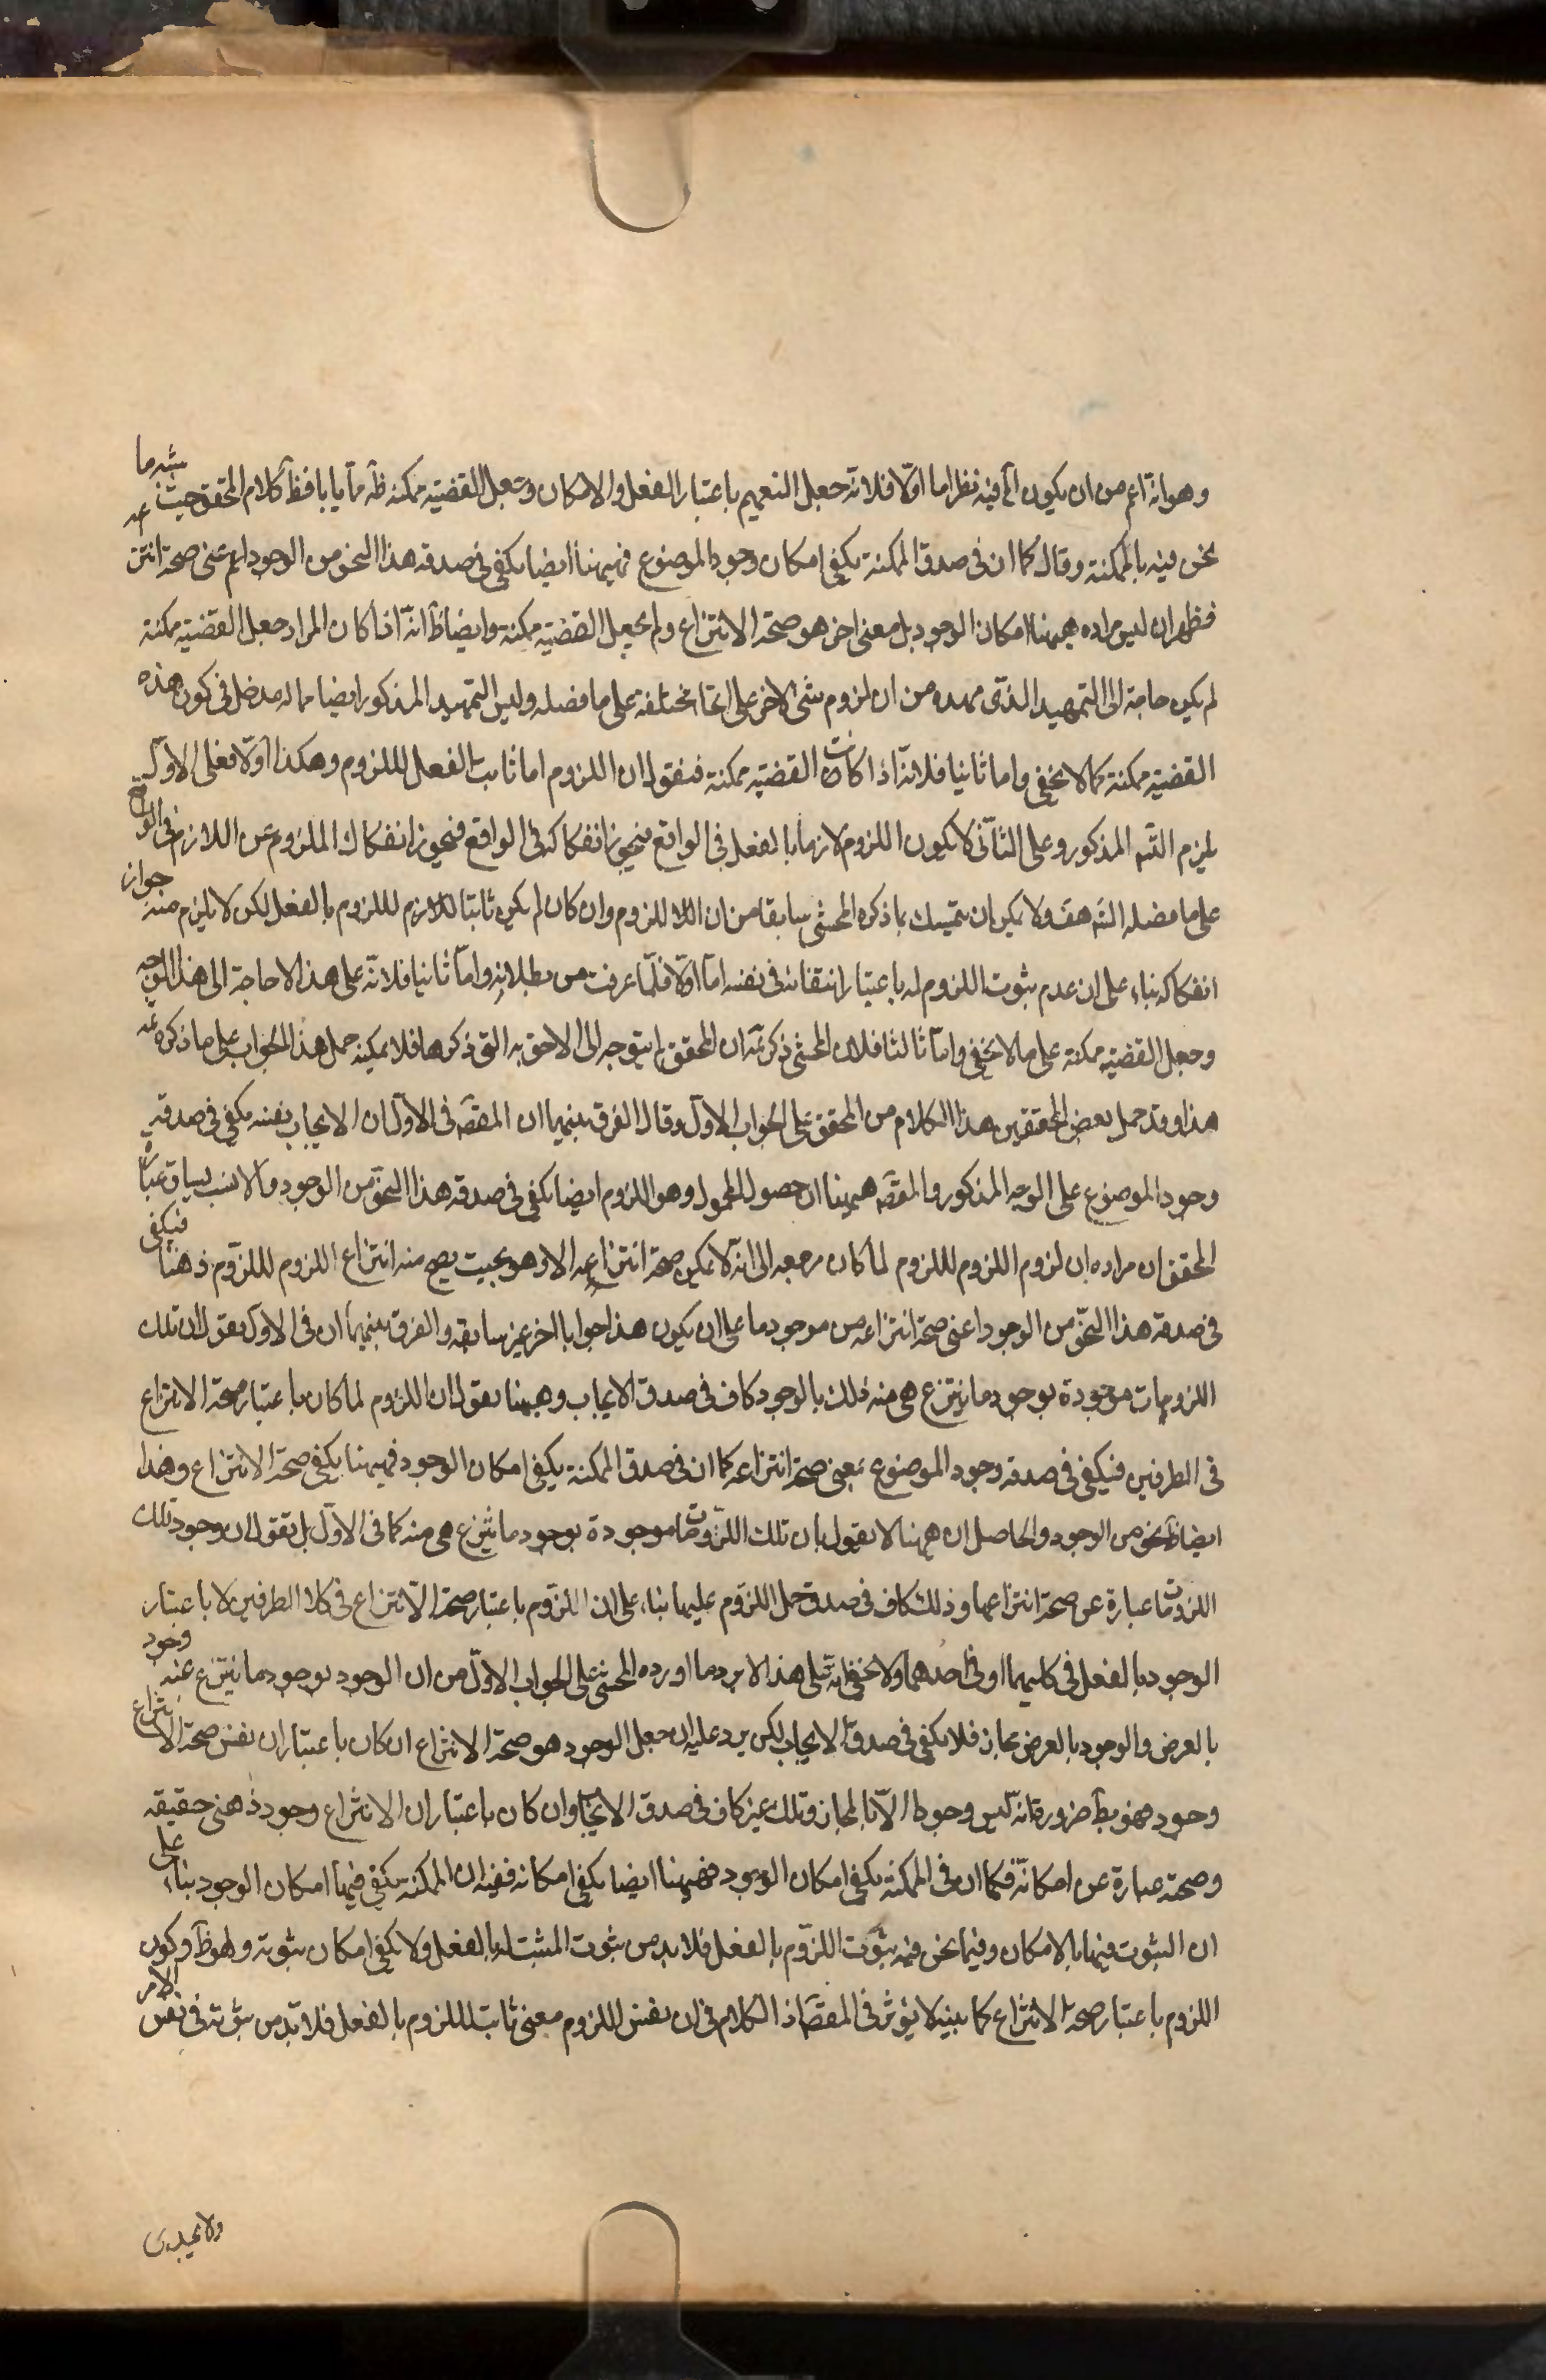 وهو انه اعم من ان يكون آه فيه نظر اما اولا فلانه جعل التعميم باعتبار الفعل والامكان وجعل القضيه ممكنه ظ مما يأباه ظ كلام المحقق حيث شبه ما
نحن فيه بالممكنة وقال كما ان في صدق الممكنة يكفي امكان وجود الموضوع فهيهنا ايضا يكفي في صدقه هذا النحو من الوجود اعني صحة انتزاعه
فظهر ان ليس مراده هيهنا امكان الوجود بل معنى اخر هو صحة الانتزاع ولم يجعل القضيه ممكنه وايضا ظ انه اذا كان المراد جعل القضيه ممكنة
لم يكن حاجة الى التمهيد الذي مهده من ان لزوم شئ لاخر على انحاء مختلفة على ما فصله وليس التمهيد المذكور ايضا مما له مدخل في كون هذه
القضيه ممكنة كما لا يخفى واما ثانيا فلانه اذا كانت القضيه ممكنة فنقول ان اللزوم اما ثابت بالفعل لللزوم وهكذا اولا فعلى الاول
يلزم التسه المذكور وعلى الثاني لا يكون اللزوم لازما بالفعل في الواقع فيجوز انفكاكه في الواقع فيجوز انفكاك الملزوم عن اللازم في الواقع
على ما فصله الشه هف ولا يمكن ان يتمسك بما ذكره المحشي سابقا من ان اللزوم وان كان لم يكن ثابتا للازم لللزوم بالفعل لكن لا يلزم منه جواز
انفكاكه بناء على ان عدم ثبوت اللزوم له باعتبار انتفائه في نفسه اما اولا فلما عرفت من بطلانه واما ثانيا فلانه على هذا لا حاجة الى هذا الوجه
وجعل القضيه ممكنة على ما لا يخفى واما ثالثا فلان المحشي ذكر ثمه ان المحقق لم يتوجه الى الاحق به التي ذكرها فلا يمكنه حمل هذا الجواب على ما ذكره ثمه
هذا وقد حمل بعض المحققين هذا الكلام من المحقق على الجواب الاول وقال الفرق بينهما ان المقصه في الاول ان الايجاب بنفسه يكفي في صدقه
وجود الموضوع على الوجه المذكور والمقصه هيهنا ان حصول المحمول وهو اللزوم ايضا يكفي في صدقه هذا النحو من الوجود والانسب بسياق عبارة
المحقق ان مراده ان لزوم اللزوم لللزوم لما كان مرجعه الى انه لا يمكن صحة انتزاعه الا وهو بحيث يصح منه انتزاع اللزوم لللزوم ذهنا فيكفي
في صدقه هذا النحو من الوجود اعني صحة انتزاعه من موجود ما على ان يكون هذا جوابا اخر غير سابقه والفرق بينهما ان في الاول يقول ان تلك
اللزومات موجودة بوجود ما ينتزع هي منه وذلك بالوجود كاف في صدق الايجاب وهيهنا يقول ان اللزوم لما كان باعتبار صحة الانتزاع
في الطرفين فيكفي في صدقه وجود الموضوع بمعنى صحة انتزاعه كما ان في صدق الممكنة يكفي امكان الوجود فهيهنا يكفي صحة الانتزاع وهذا
ايضا نحو من الوجود والحاصل ان هيهنا لا يقول بان تلك اللزومات موجودة بوجود ما ينتزع هي منه كما في الاول بل يقول ان وجود تلك
اللزومات عبارة عن صحة انتزاعها وذلك كاف في صدق حمل اللزوم عليها بناء على ان اللزوم باعتبار صحة الانتزاع في كلا الطرفين لا باعتبار
الوجود بالفعل في كليهما او في احدهما ولا يخفى انه على هذا لا يرد ما اورده المحشي على الجواب الاول من ان الوجود بوجود ما ينتزع عنه وجود
بالعرض والوجود بالعرض مجاز فلا يكفي في صدق الايجاب لكن يرد عليه ان جعل الوجود هو صحة الانتزاع ان كان باعتبار ان نفس صحة الانتزاع
وجود فهو بط ضرورة انه ليس وجودا الا بالمجاز وتلك غير كاف في صدق الايجاب وان كان باعتبار ان الانتزاع وجود ذهني حقيقه
وصحته عبارة عن امكانه فكما ان في الممكنة يكفي امكان الوجود فهيهنا ايضا يكفي امكانه ففيه ان الممكنة يكفي فيها امكان الوجود بناء على
ان الثبوت فيها بالامكان وفيما نحن فيه ثبوت اللزوم بالفعل فلا بد من ثبوت المثبت له بالفعل ولا يكفي امكان ثبوته وهو ظ وكون
اللزوم باعتبار صحة الانتزاع كما بينه لا يؤثر في المقصه اذ الكلام في ان نفس اللزوم معنى ثابت لللزوم بالفعل فلا بد من ثبوته في نفس الامر
ولا يجدى